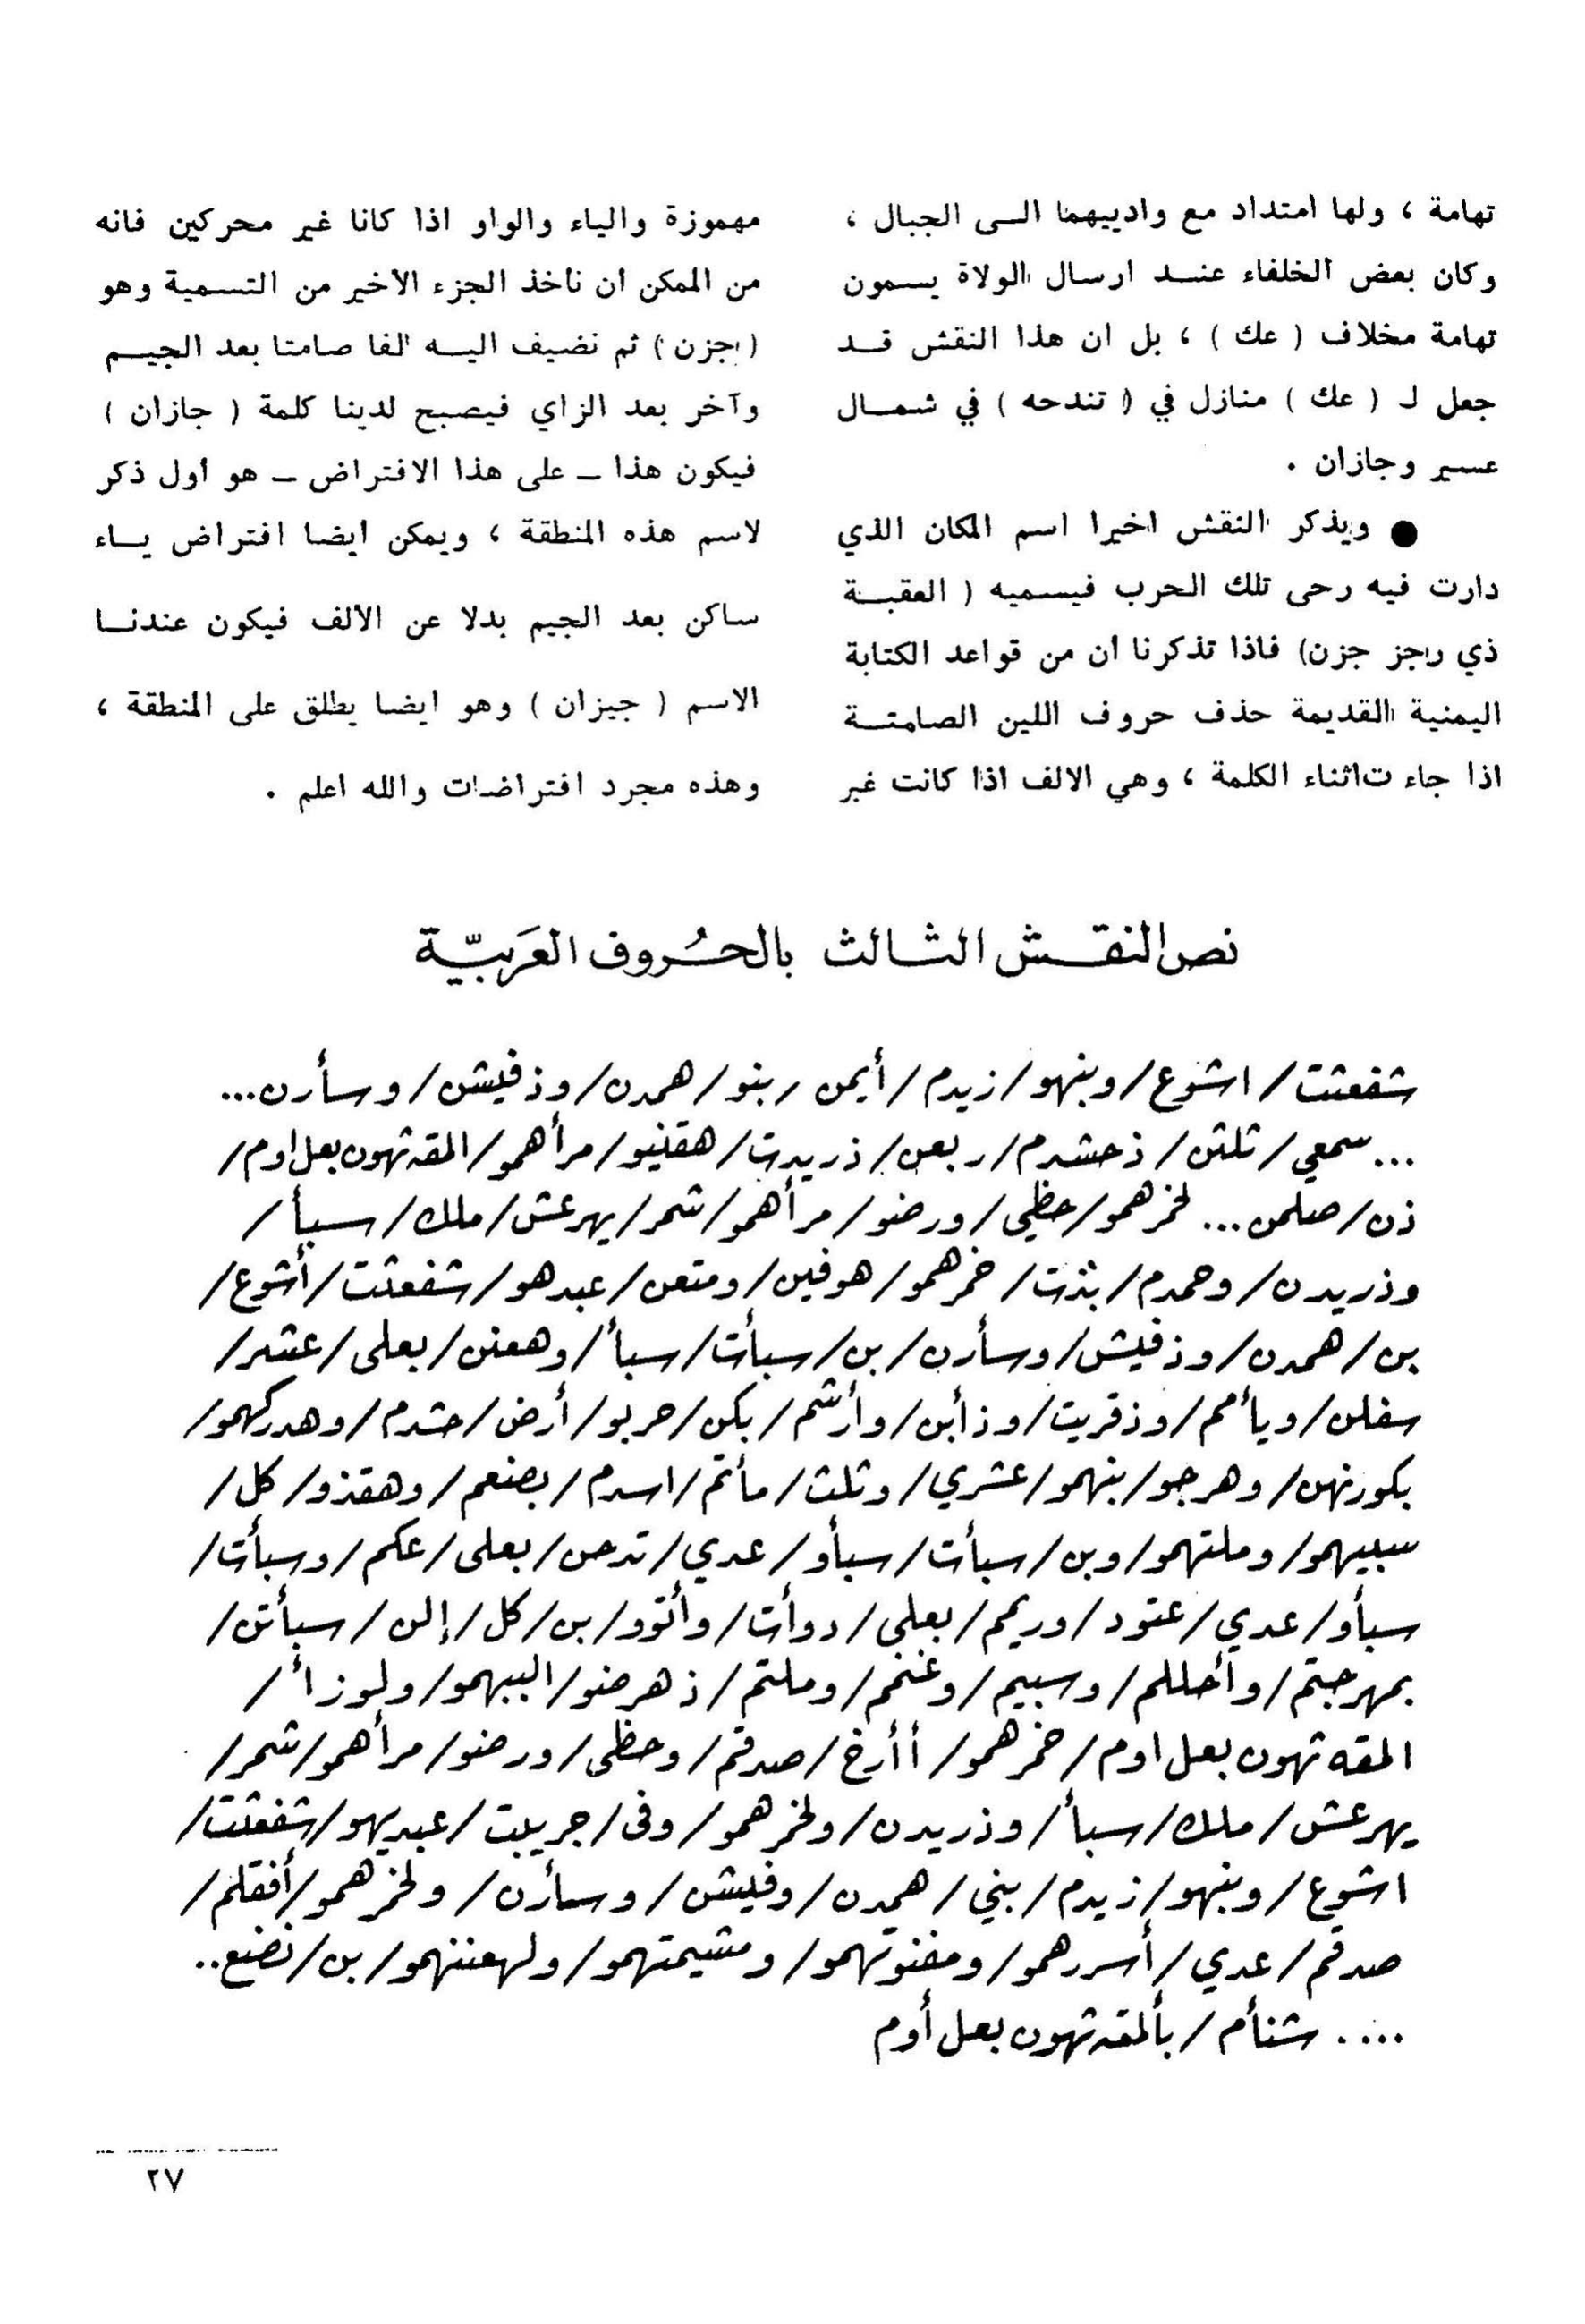 تهامة ، ولها امتداد مع وادييهما الـى الجبال ،
وكان بعض الخلفاء عنــد ارسال الولاة يسمون
تهامة مخلاف ( عك ) ، بل ان هذا النقش قــد
جعل لـ ( عك ) منازل في ( تندحه ) في شمــال
عسير وجازان .
● ويذكر النقش اخيرا اسم المكان الذي
دارت فيه رحى تلك الحرب فيسميه ( العقبــة
ذي رجز جزن) فاذا تذكرنا ان من قواعد الكتابة
اليمنية القديمة حذف حروف اللين الصامتــة
اذا جاء ت اثناء الكلمة ، وهي الالف اذا كانت غير
مهموزة والياء والواو اذا كانا غير محركين فانه
من الممكن ان ناخذ الجزء الاخير من التسمية وهو
( جزن ) ثم نضيف اليــه الفا صامتا بعد الجيــم
وآخر بعد الزاي فيصبح لدينا كلمة ( جازان )
فيكون هذا ــ على هذا الافتراض ــ هو أول ذكر
لاسم هذه المنطقة ، ويمكن ايضا افتراض يــاء
ساكن بعد الجيم بدلا عن الالف فيكون عندنــا
الاسم ( جيزان ) وهو ايضا يطلق على المنطقة ،
وهذه مجرد افتراضات والله اعلم .
نص النقــش الثــالث بالحــُروف العَربيّــة
شفعثت / اشوع / وبنهو / زيدم / أيمن / بنو / همدن / وذفيش / وسأرن ...
... سمعي / ثلثن / ذحشدم / ربعن / ذريدت / هقنيو / مرأهمو / المقه ثهون بعل اوم /
ذن / صلمن ... لخمرهمو / حظي / ورضو / مرأهمو / شمر / يهرعش / ملك / سبأ /
وذريدن / وحمدم / بذت / خمرهمو / هوفين / ومتعن / عبدهو / شفعثت / أشوع /
بن / همدن / وذفيش / وسأرن / بن / سبأت / سبأ / وهعنن / بعلى / عشر /
سفلن / ويأمم / وذقريت / وذأبن / وأرشم / بكن / حربو / أرض / حشدم / وهدركهمو /
بكورنهن / وهرجو / بنهمو / عشري / وثلث / مأتم / اسدم / بضعم / وهقذو / كل /
سبيهمو / وملتهمو / وبن / سبأت / سبأو / عدي / تدحن / بعلى / عكم / وسبأت /
سبأو / عدي / عتود / وريمم / بعلى / دوأت / وأتوو / بن / كل / إلن / سبأتن /
بمهرجتم / وأحللم / وسبيم / وغنمم / وملتم / ذهرضو / البيهمو / ولوزأ /
المقه ثهون بعل اوم / خمرهمو / أأرخ / صدقم / وحظى / ورضو / مرأهمو / شمر /
يهرعش / ملك / سبأ / وذريدن / ولخمرهمو / وفى / جريبت / عبديهو / شفعثت /
اشوع / وبنهو / زيدم / بني / همدن / وفيش / وسأرن / ولخمرهمو / أفقلم /
صدقم / عدي / أسررهمو / ومفنوتهمو / ومشيمتهمو / ولهعننهمو / بن / نضع ..
.... شنأم / بألمقه ثهون بعل أوم
٢٧